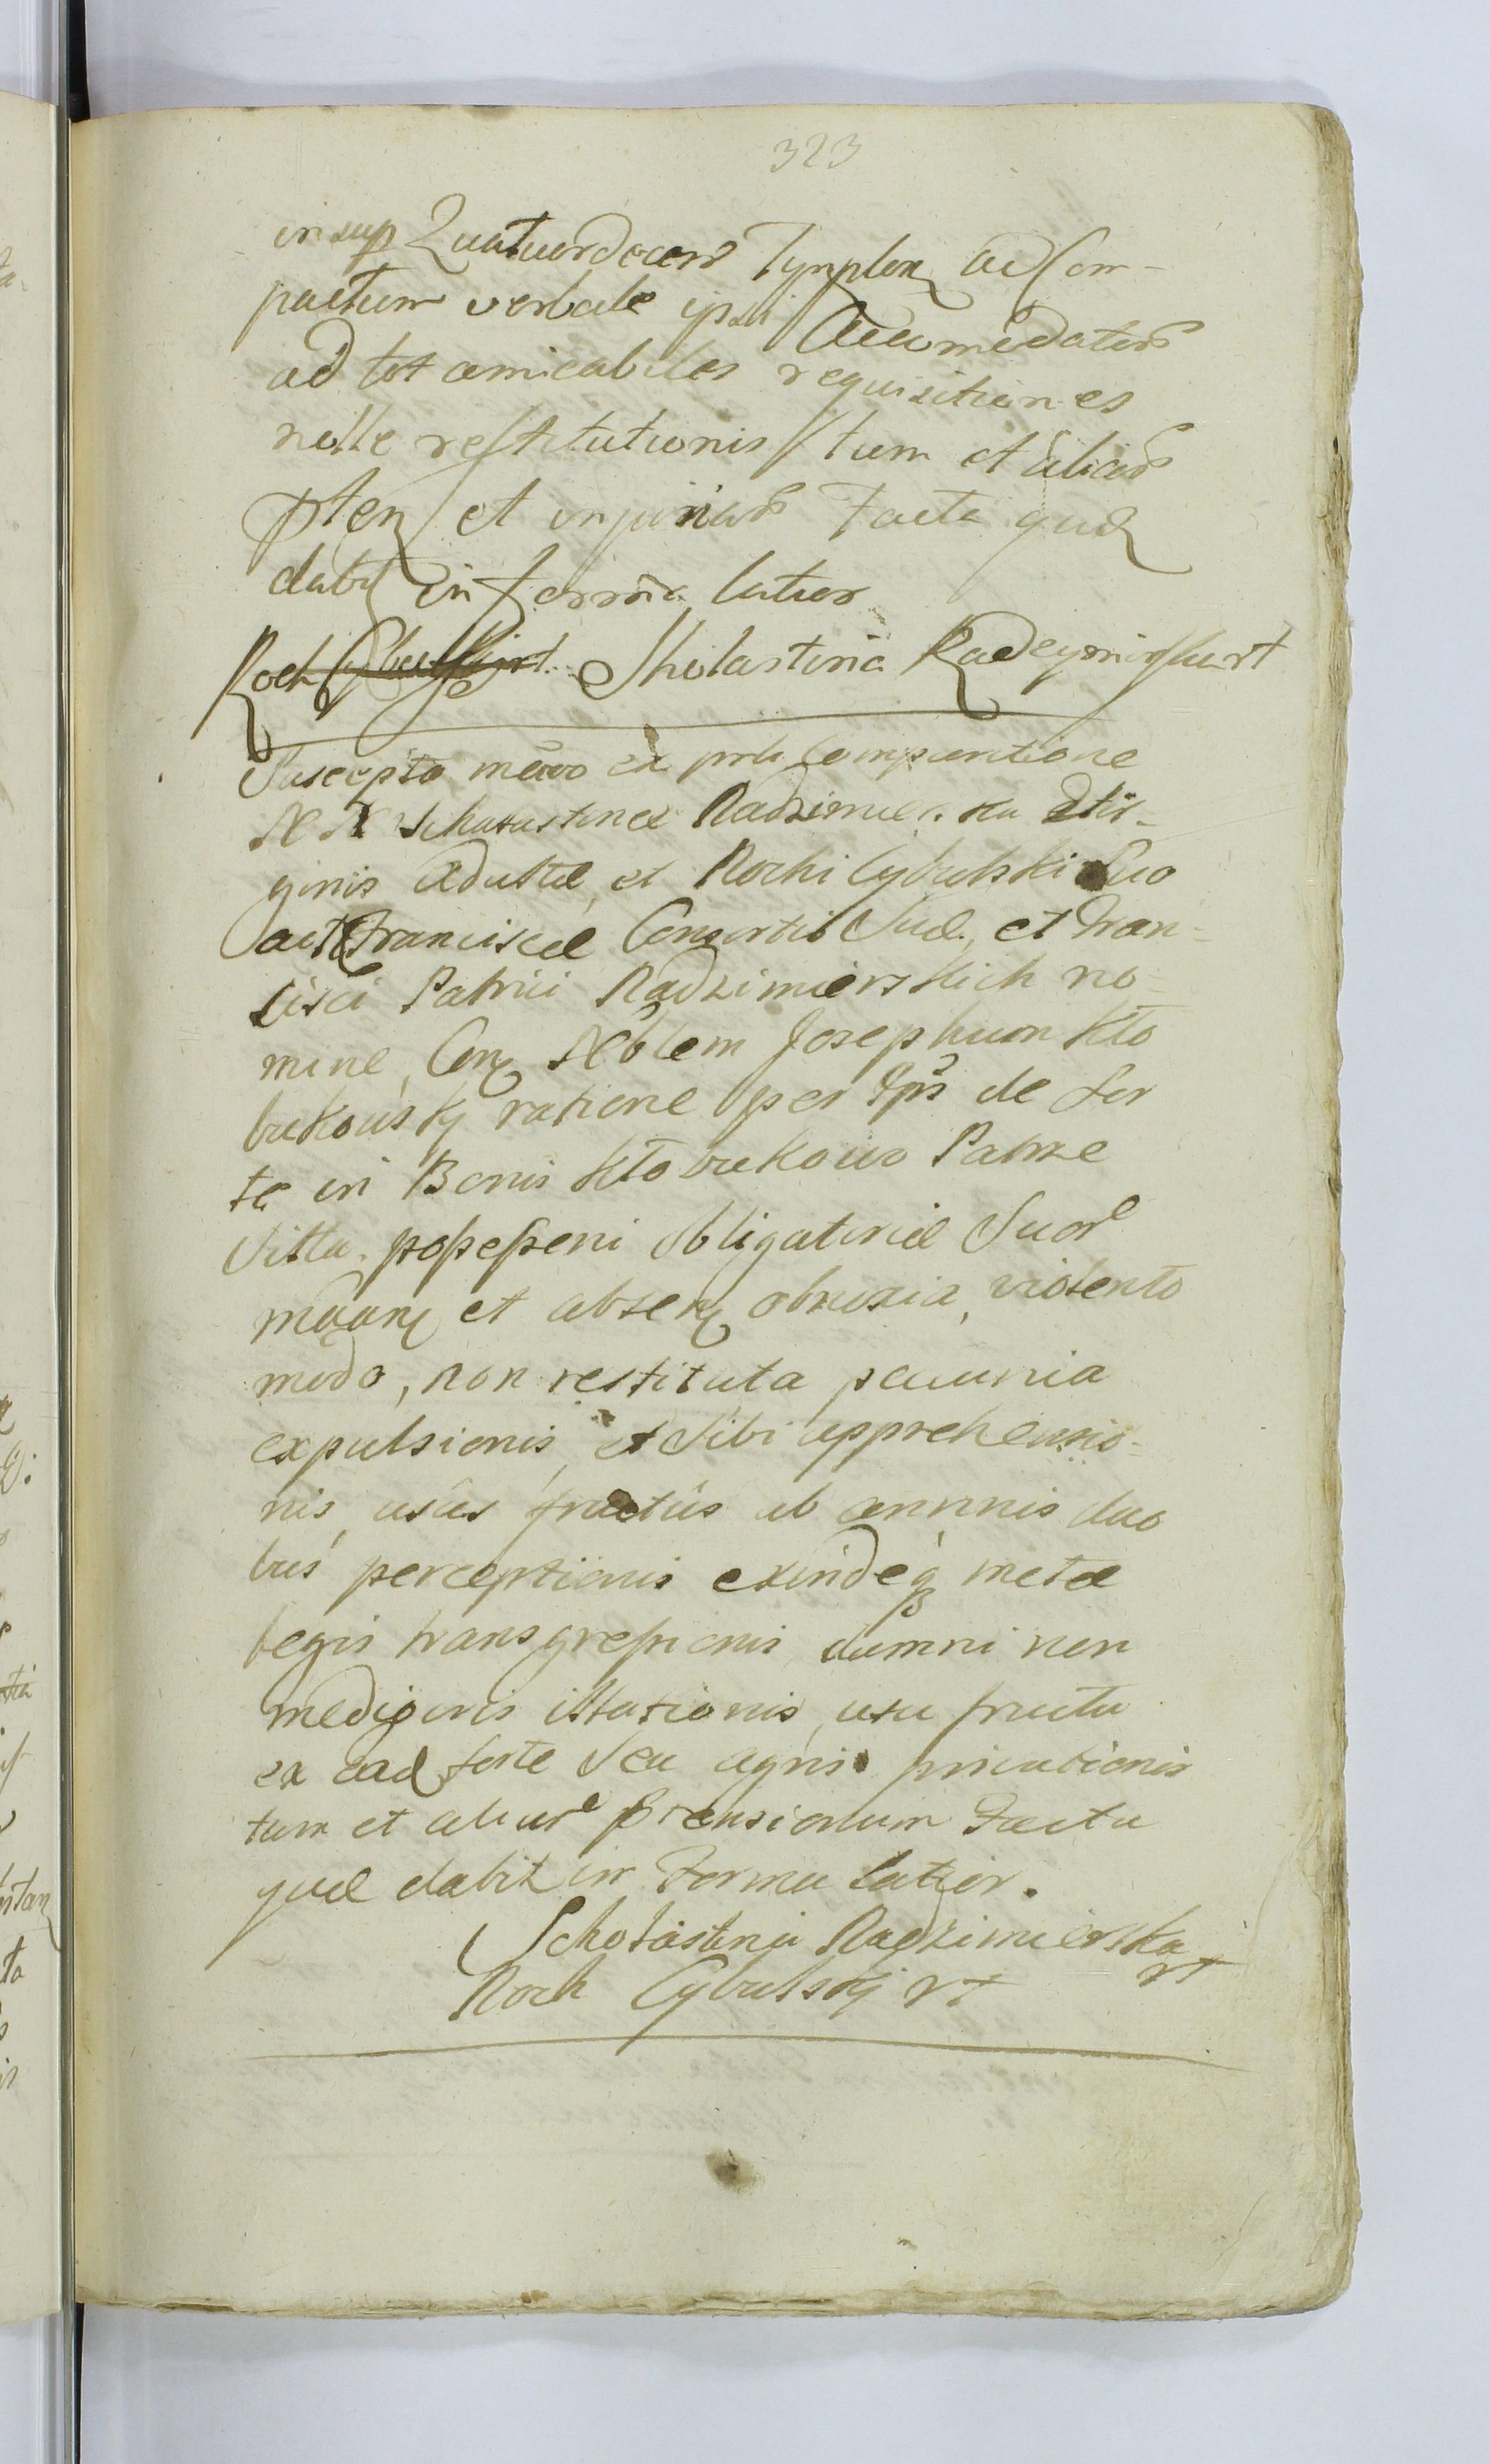 323
insup Quatuordecem Tympfon ad Com-
pactum verbale ipsi Accomodator
ad tot amicabiles requisitiones
nolle restitutionis tum et alior
pten et injuriar Facta quae
dabit in forma latior
Roch Cybulski rt Sholastina Radeyminska rt
Suscepto mevo ex prli Comparitione
NN Scholastinae Radzimierska Vir-
ginis Adultae, et Rochi Cybulski Suo
ac Franciscae Consortis Suae, et Fran-
cisci Patrui Radzimierskich no-
mine, Con Nblem Josephum Kło
bukowsky ratione per Ipm de for
te in Bonis Kłobukowo Patrze
Villa possessioni obligatoriae Suor
maan et absen obnoxia, violento
modo, non restituta pecunia
expulsionis, et Sibi apprehensio-
nis, usus fructus ab annnis duo
bus perceptionis exindeq metae
legis transgressionis damni non
mediocris illationis, usu fructu
ex ead forte Seu agris privationis
tum et alior prensionum Facta
quae dabit in Forma latior.
Scholastina Radzimierska
rt
Roch Cybulskj rt